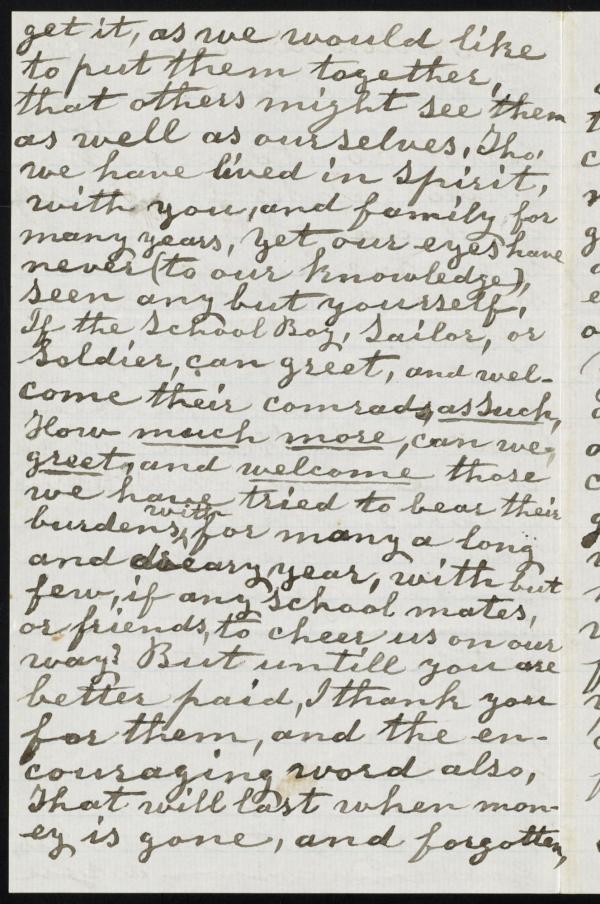 get it, as we would like
to put them together,
that others might see them
as well as ourselves, Tho,
we have lived in spirit,
with you, and family for
many years, yet, our eyes have
never (to our knowledge),
seen any but yourself,
If the School Boy, Sailor, or
Soldier, can greet, and wel-
come their comrads, as such,
How much more, can we,
greet, and welcome those
we have tried to bear their
burdens, with for many a long
and dreary year, with but
few, if any school mates,
or friends, to cheer us on our
way? But untill you are
better paid, I thank you
for them, and the en-
couraging word also,
That will last when mon-
ey is gone, and forgotten,